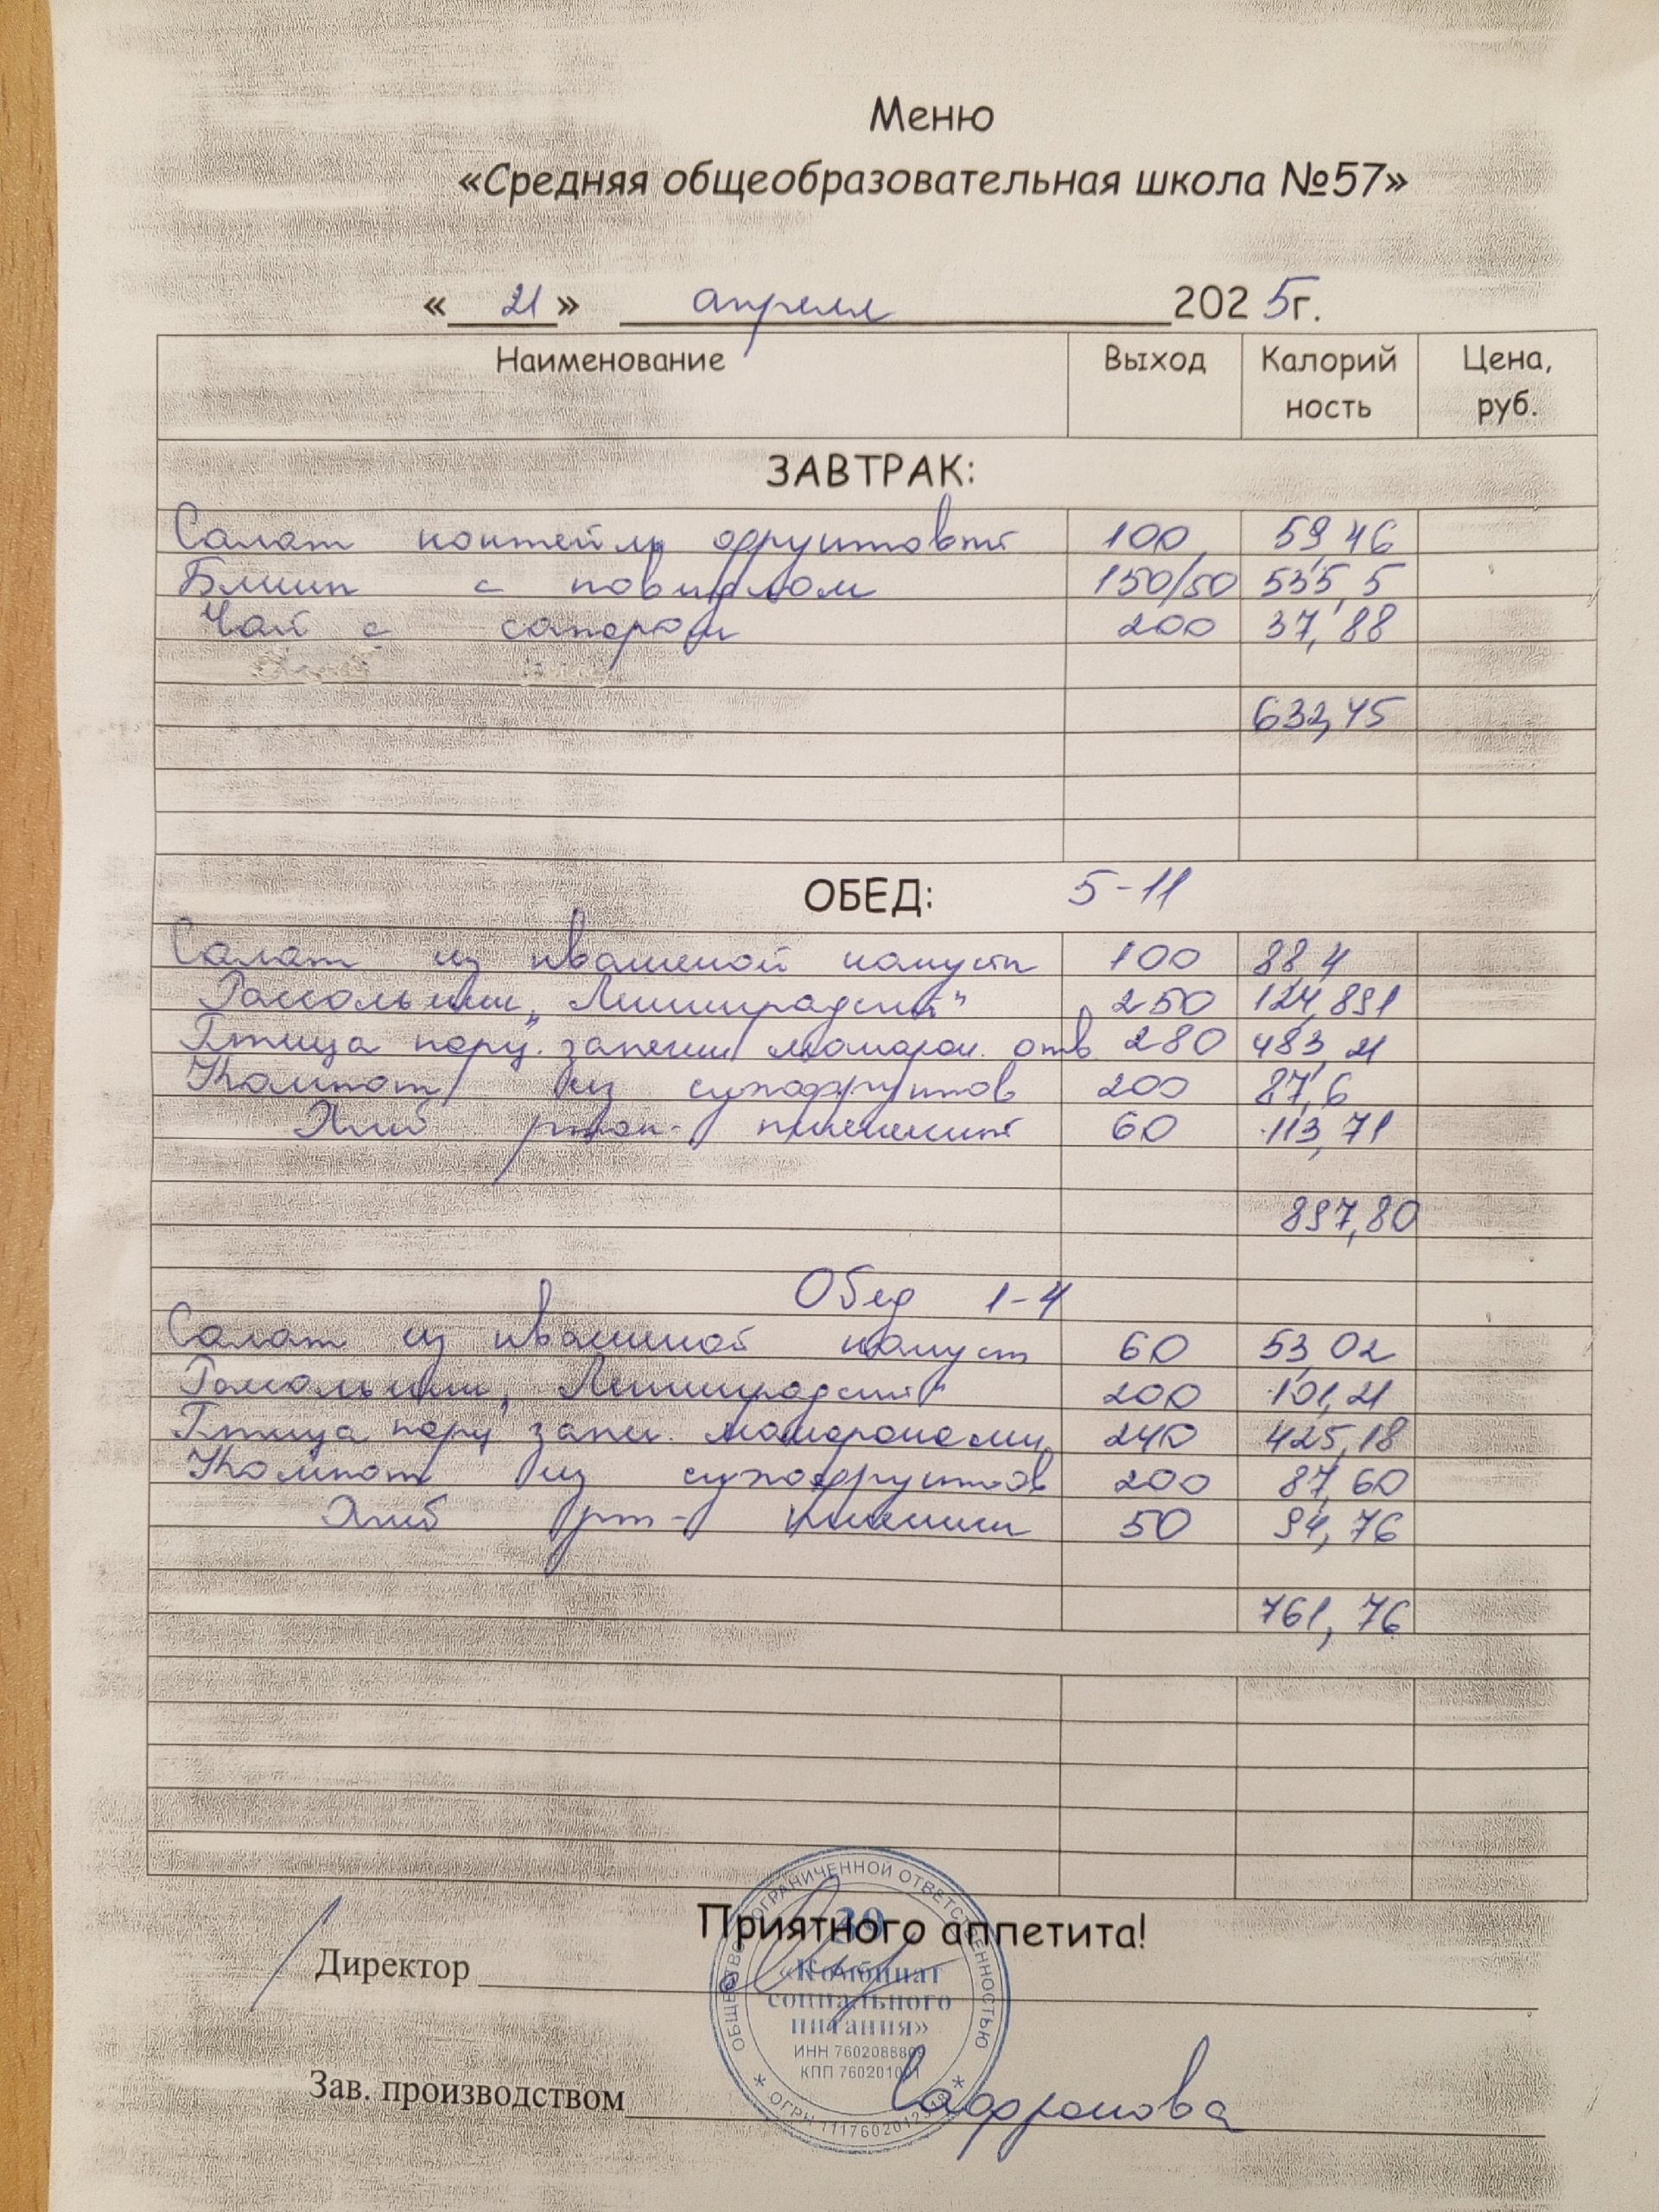 Меню
«Средняя общеобразовательная школа №57»
« 21 » апреля 2025г.
Наименование Выход Калорий ность Цена, руб.
ЗАВТРАК:
Салат коктейль фруктовый 100 59,46
Блины с повидлом 150/50 535,5
Чай с сахаром 200 37,88
632,45
ОБЕД: 5-11
Салат из квашеной капусты 100 88,4
Рассольник „Ленинградский" 250 124,891
Птица порц. запечен макарон. отв 280 483,21
Компот из сухофруктов 200 87,6
Хлеб ржан- пшеничный 60 113,71
897,80
Обед 1-4
Салат из квашеной капуст 60 53,02
Рассольник „Ленинградский" 200 101,21
Птица порц запеч. макаронами 240 425,18
Компот из сухофруктов 200 87,60
Хлеб рж- пшеничн 50 94,76
761,76
Приятного аппетита!
Директор
Зав. производством Сафронова
ОБЩЕСТВО С ОГРАНИЧЕННОЙ ОТВЕТСТВЕННОСТЬЮ
«Комбинат
социального
питания»
ИНН 7602088809
КПП 760201001
ОГРН